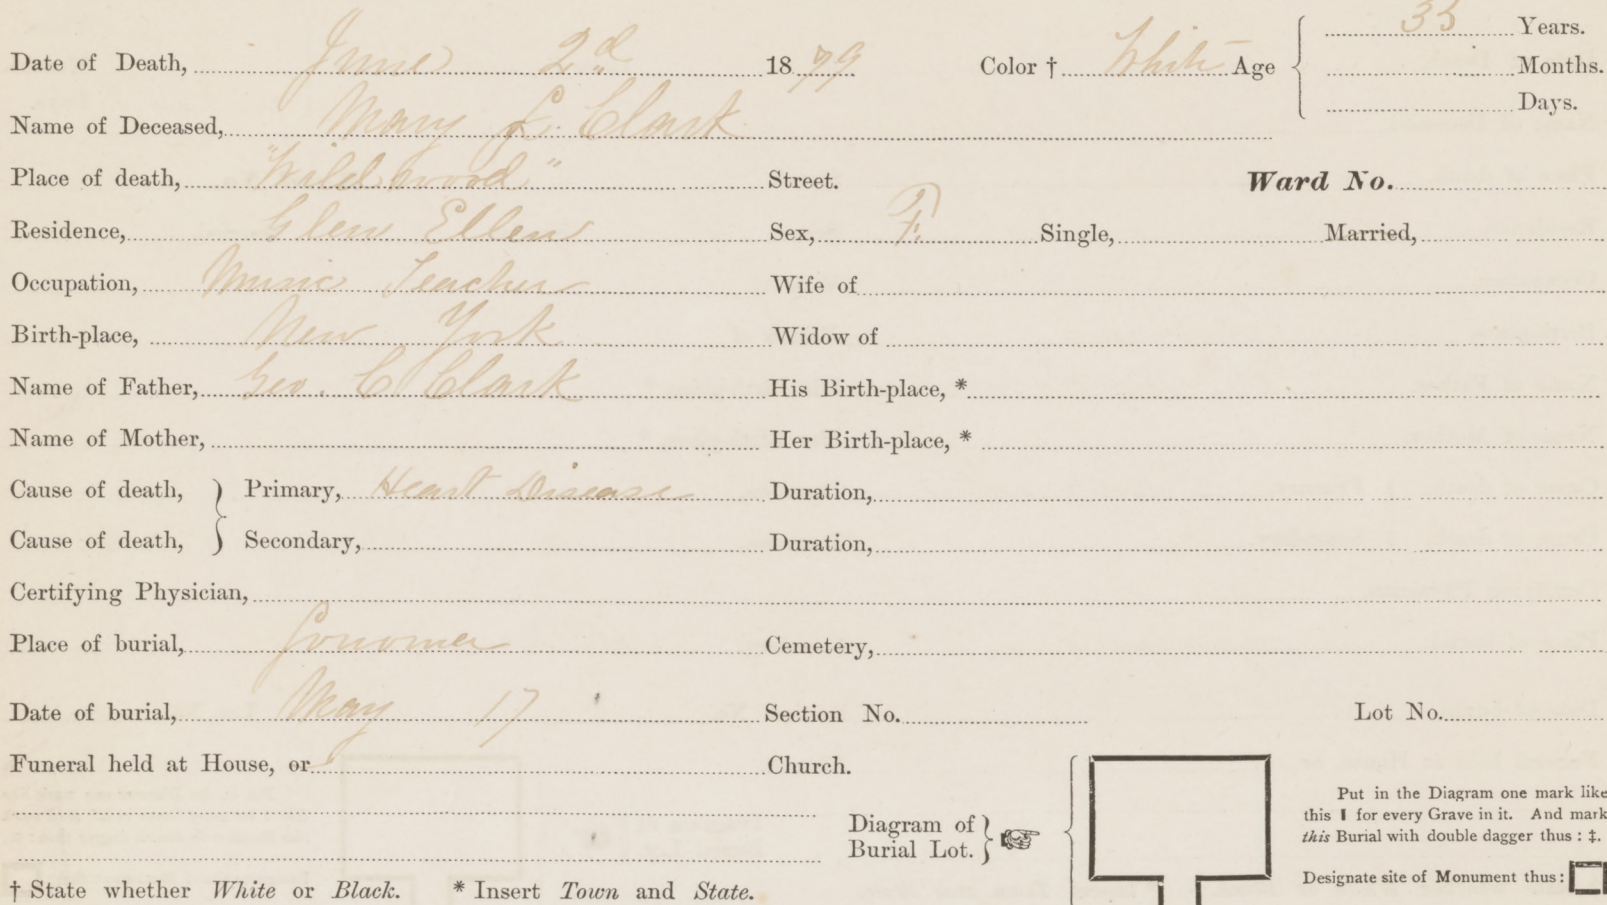 35 Years.
Date of Death, June 2d 1879 Color † White Age Months.
Days.
Name of Deceased, Mary L. Clark
Place of death, "Wildwood" Street. Ward No.
Residence, Glen Ellen Sex, F. Single, Married,
Occupation, Music Teacher Wife of
Birth-place, New York Widow of
Name of Father, Geo. C Clark His Birth-place, *
Name of Mother, Her Birth-place, *
Cause of death, Primary, Heart Disease Duration,
Cause of death, Secondary, Duration,
Certifying Physician,
Place of burial, Sonoma Cemetery,
Date of burial, May 17 Section No. Lot No.
Funeral held at House, or Church.
Diagram of Burial Lot.
Put in the Diagram one mark like
this I for every Grave in it. And mark
this Burial with double dagger thus : ‡.
Designate site of Monument thus :
† State whether White or Black. * Insert Town and State.